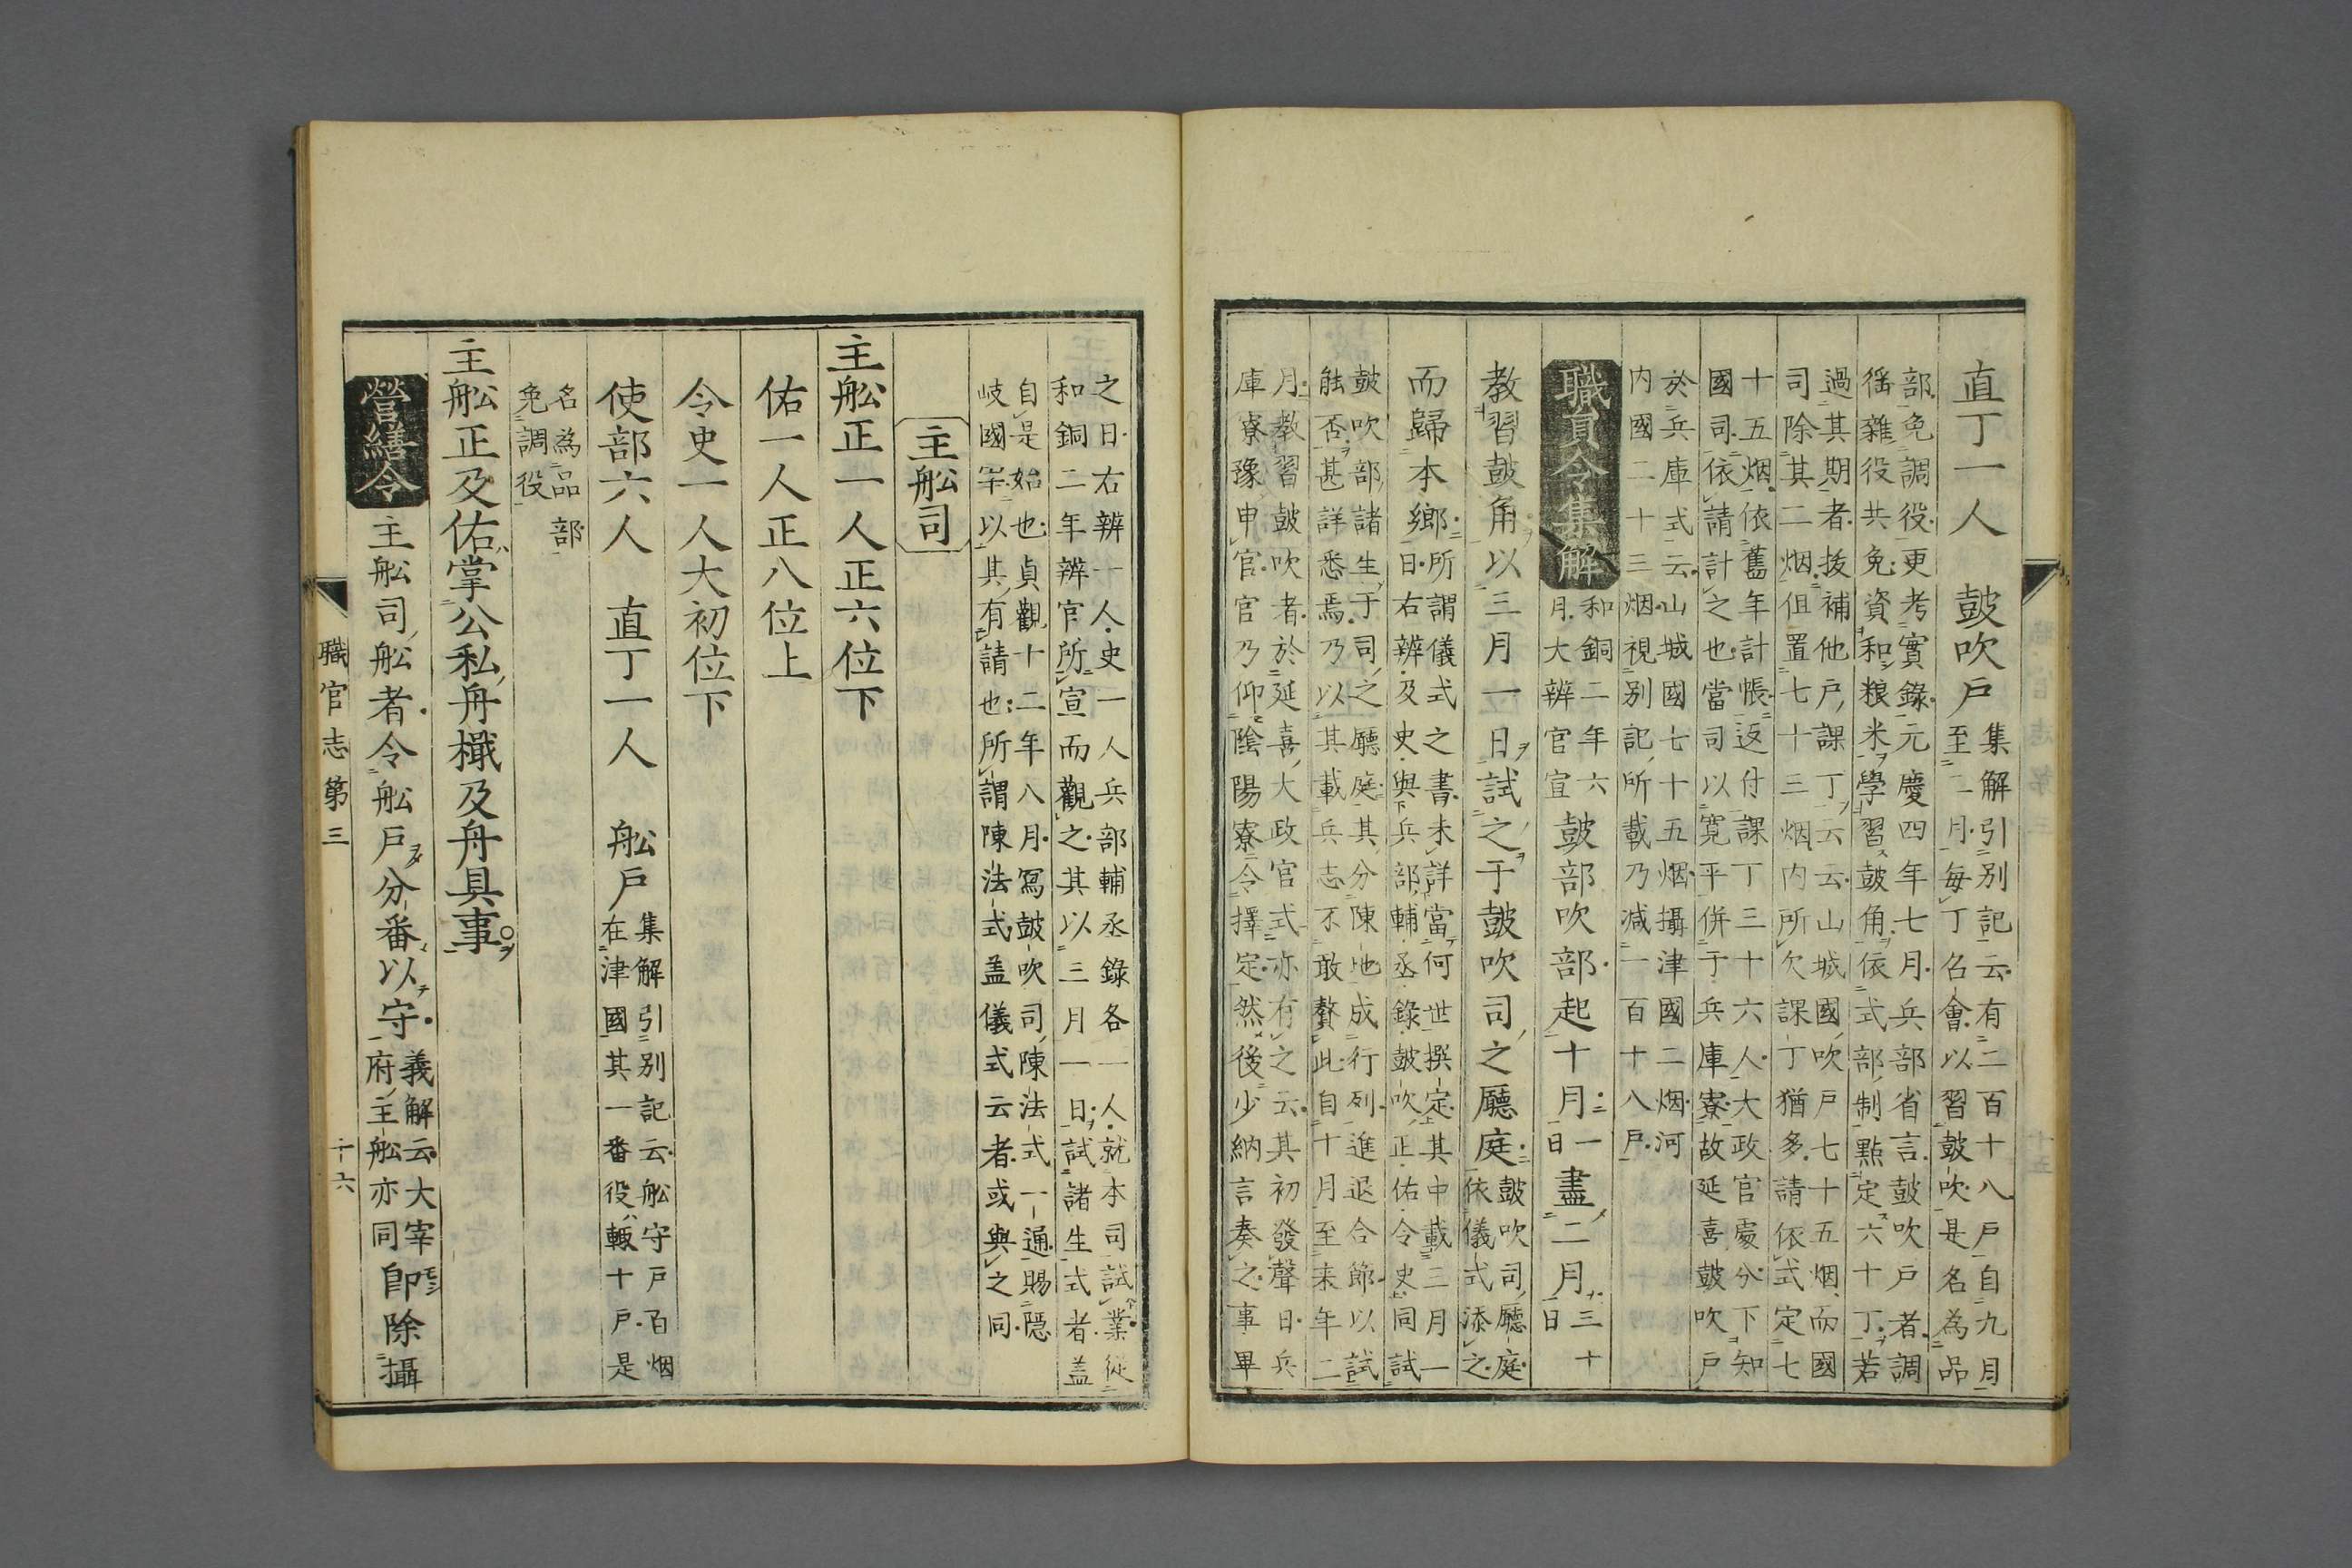 直丁一人　鼓吹戸
集解引別記云有二百十八戸自九月
至二月毎丁召會以習鼓吹是名為品
部免調役更考實錄元慶四年七月兵部省言鼓吹戸者調
徭雜役共免資和粮米學習鼓角依式部制點定六十丁若
過其期者抜補他戸課丁云云山城國吹戸七十五烟而國
司除其二烟但置七十三烟内所欠課丁猶多請依式定七
十五烟依舊年計帳返付課丁三十六人大政官處分下知
國司依請計之也當司以寛平併于兵庫寮故延喜鼓吹戸
於兵庫式云山城國七十五烟攝津國二烟河
内國二十三烟視別記所載乃減一百十八戸
職員令集解
和銅二年六
月大辨官宣
鼓部吹部起十月
一
日
盡二月
三十
日
教習鼓角以三月一日試之于鼓吹司之廳庭
鼓吹司廳庭
依儀式添之
而歸本鄉
所謂儀式之書未詳當何世撰定其中載三月一
日右辨及史與兵部輔丞錄鼓吹正佑令史同試
鼓吹部諸生于司之廳庭其分陳地成行列進退合節以試
能否甚詳悉焉乃以其載兵志不敢贅此自十月至来年二
月教習鼓吹者於延喜大政官式亦有之云其初發聲日兵
庫寮豫申官官乃仰陰陽寮令擇定然後少納言奏之事畢
之日右辨一人史一人兵部輔丞錄各一人就本司試業從
和銅二年辨官所宣而觀之其以三月一日試諸生式者蓋
自是始也貞觀十二年八月冩鼓吹司陳法式一通賜隱
岐國宰以其有請也所謂陳法式盖儀式云者或與之同
主舩司
主舩正一人正六位下
佑一人正八位上
令史一人大初位下
使部六人　直丁一人　舩戸
集解引別記云舩守戸百烟
在津國其一番役輙十戸是
名為品部
免調役
主舩正及佑掌公私舟檝及舟具事
營繕令
主舩司舩者令舩戸分番以守
義解云大宰
府主舩亦同
即除攝
職官志第三
十六